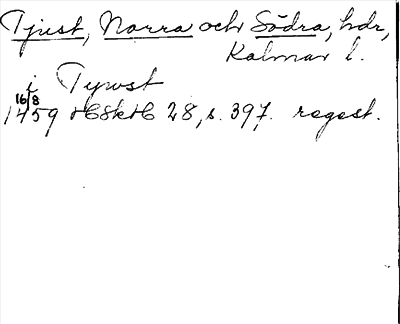 Tjust, Norra och Södra, hdr,
Kalmar l.
i Tywst
16/8
1459 HSkH 28, s. 397. regest.